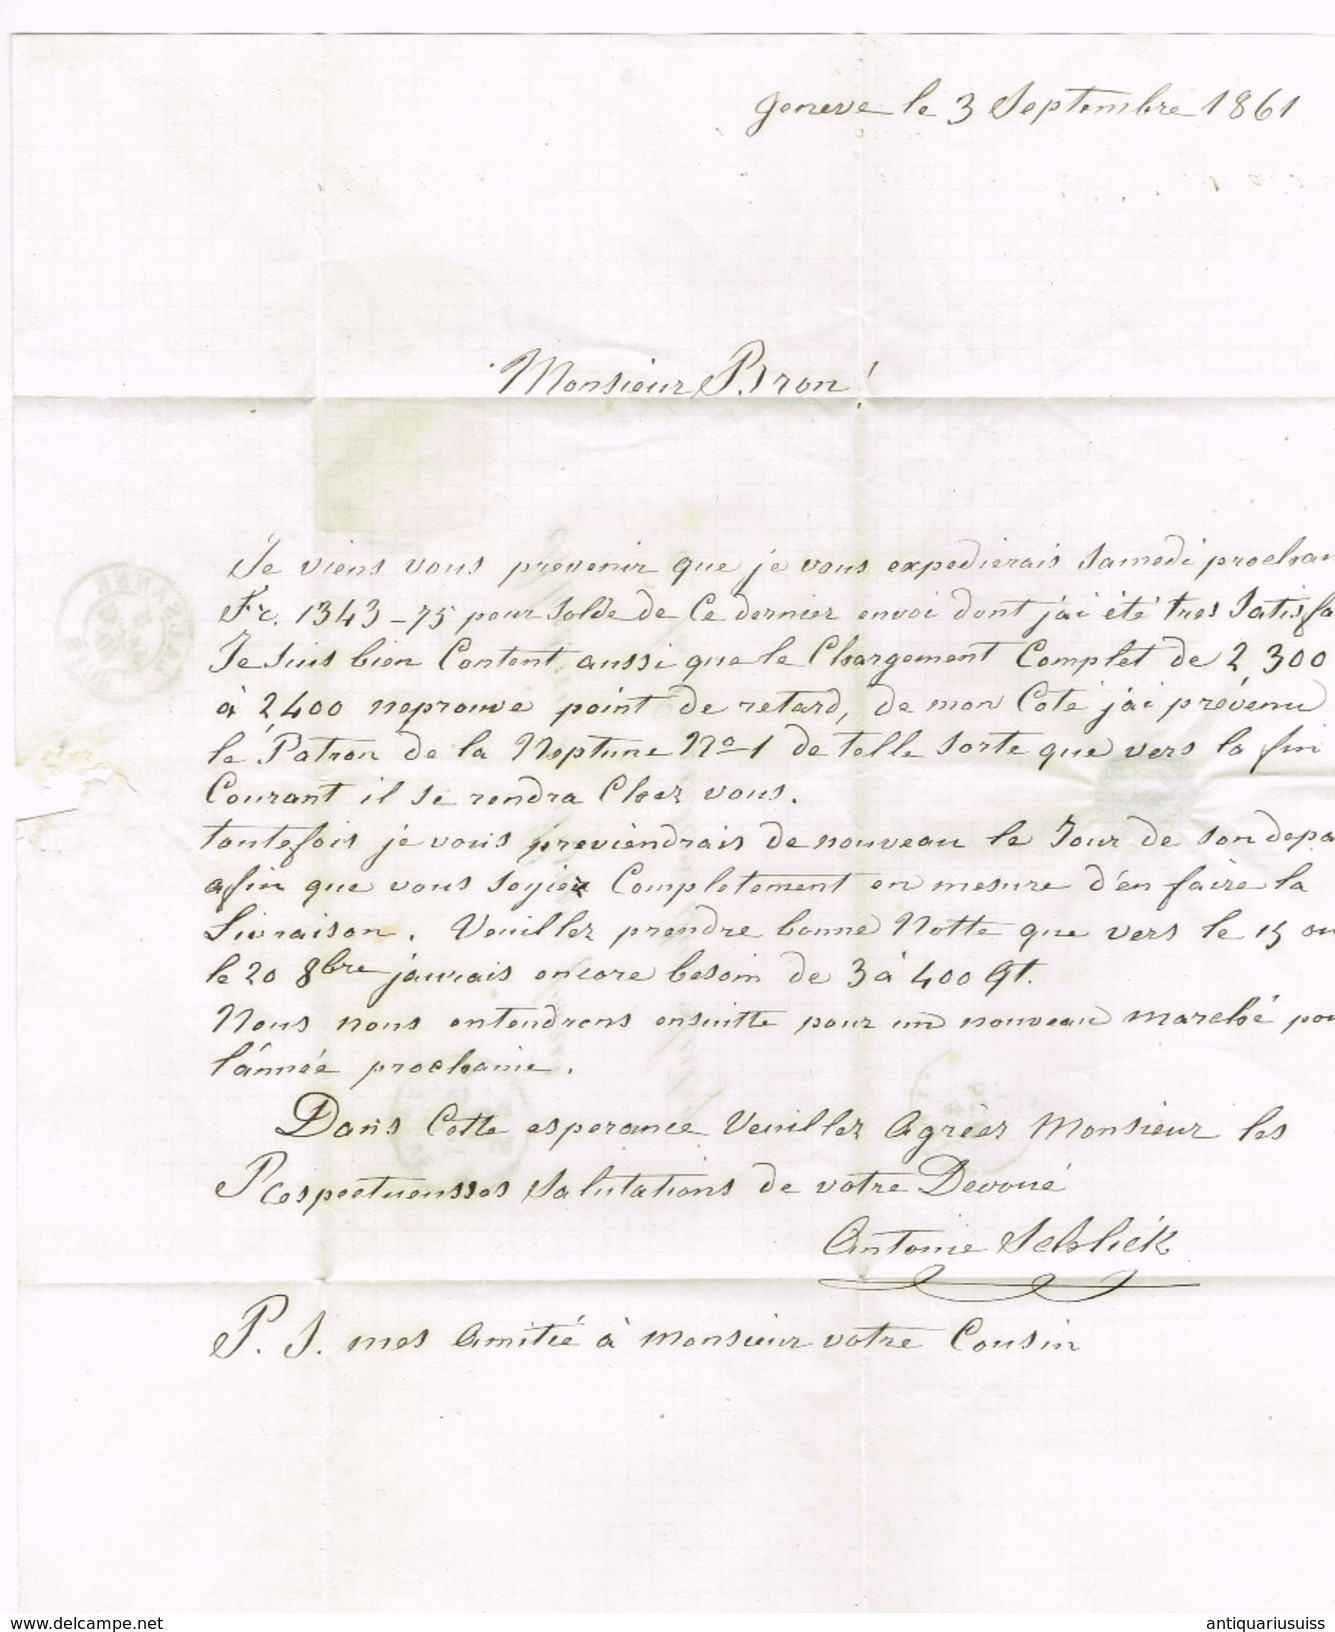 Geneve le 3 Septembre 1861
Monsieur Bron!
Je viens vous prevenir que je vous expedierais Samedi prochan
Fr. 1343-75 pour Solde de Ce dernier envoi dont j'ai été tres Satisfa
Je Suis bien Content aussi que le Chargement Complet de 2300
à 2400 neprouve point de retard, de mon Coté j'ai prévenu
le Patron de la Neptune No 1 de telle Sorte que vers la fin
Courant il se rendra Chez vous.
toutefois je vous previéndrais de nouveau le Jour de son depa
afin que vous Soyiez Completement en mesure d'en faire la
Livraison. Veuillez prendre bonne Notte que vers le 15 ou
le 20 8bre jaurais encore besoin de 3 à 400 Qt.
Nous nous entendrons ensuitte pour un nouveau marché pou
l'année prochaine.
Dans Cette esperance Veuillez Agréer Monsieur les
Respectueusses Salutations de votre Devoué
Antoine Schliék
P. S. mes Amitié à Monsieur votre Cousin
www.delcampe.net
antiquariusuiss